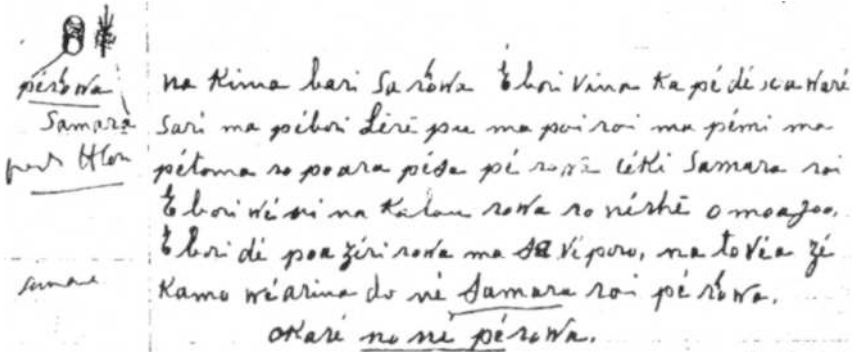 pérowa
Samara
na Kima bari Sa rowa Ébori Vina Ka pé dé waré
Sari ma pébori Léré pu ma poi roi ma pémi ma
pétoma ro poara pésa pé céki Samara roi
Ébori wé ni na Kalau rowa ro néshé o moajoo.
Ébori dé poa zéri rowa ma Sa Vé poro, na to véa zé
Kamo wé arina do né Samara roi pé rowa.
OKaré no né pérowa.